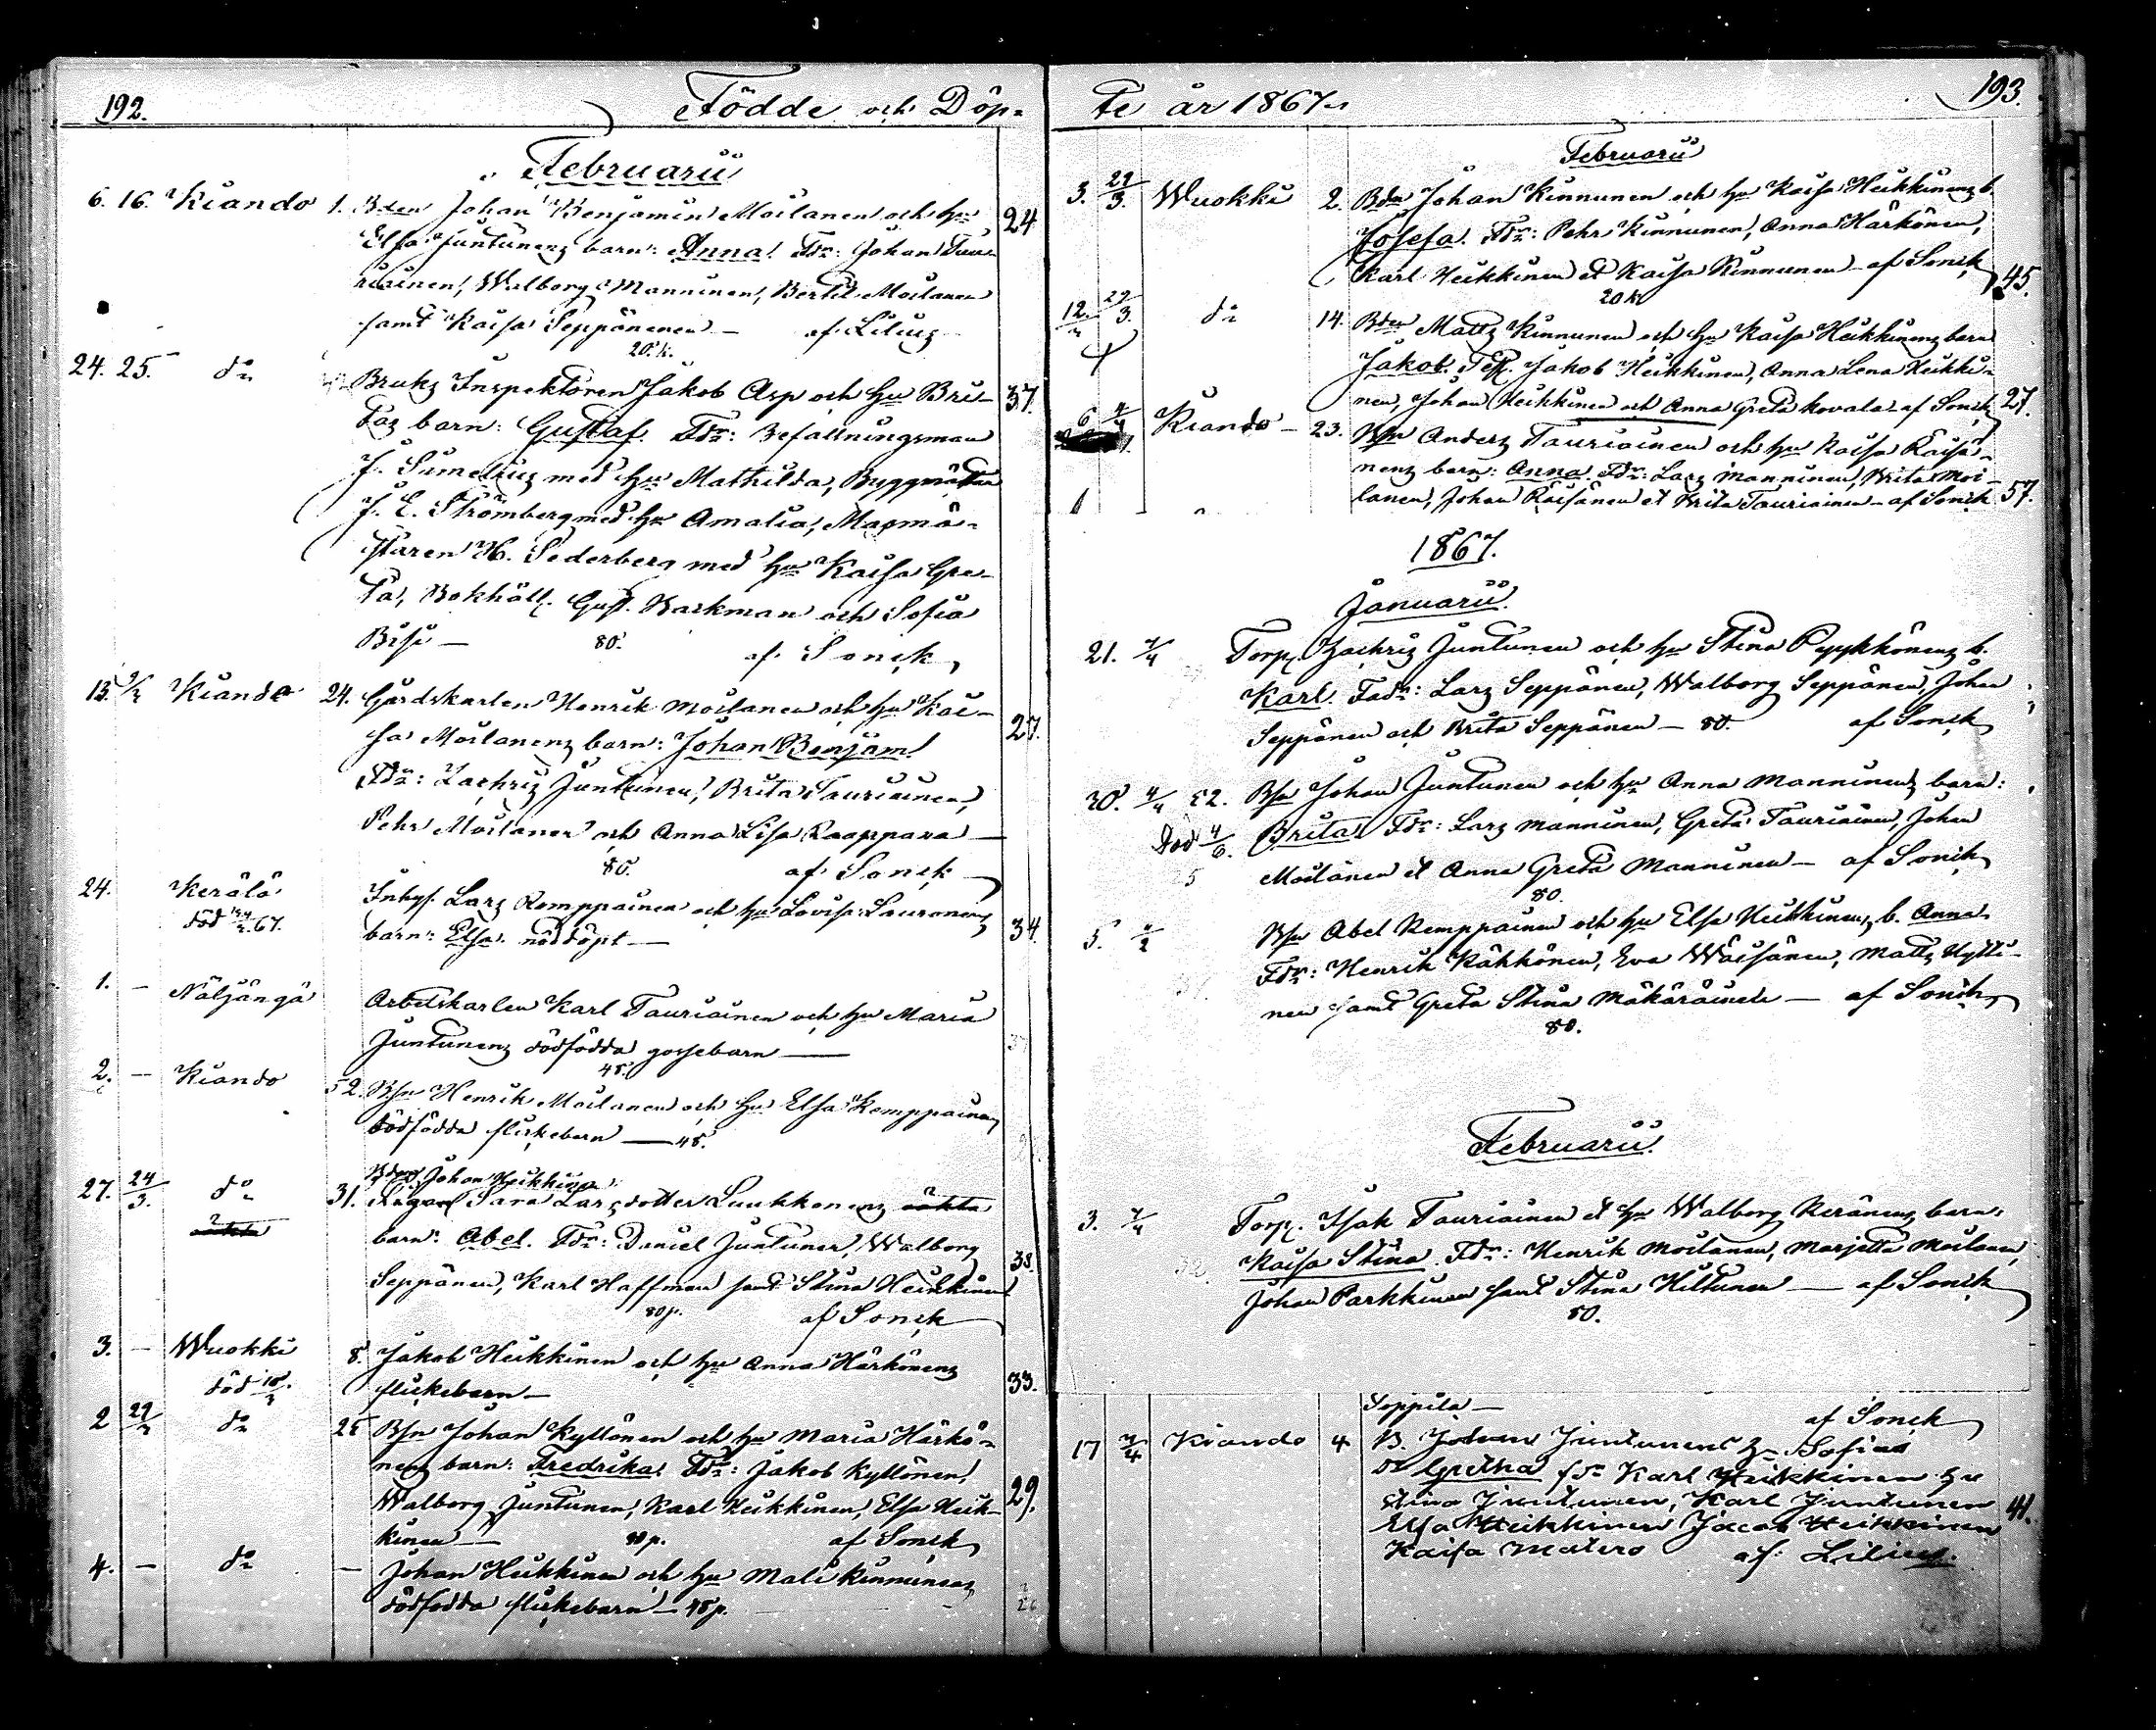 192.
Födde och Döp=
Februarii
6. 16. Kiando 1. Bden Johan Benjamin Moilanen och hu 24
Elsa Juntunens barn: Anna. Fdr: Johan Tau-
riainen, Walborg Manninen, Bertil Moilanen
samt Kaisa Seppänenen — af Lilius
20 k.
24. 25. do Bruks Inspektoren Jakob Asp och hu Bri- 37.
tas barn: Gustaf. Fdr: Befallningsman
J. Simelius med hu Mathilda, Byggmästar
J. E. Strömberg med hu Amalia, Masmä-
staren H. Sederberg med hu Kaisa Gre-
ta, Bokhåll. Gust. Backman och Sofia
Bisi — 80. af Sonck
13. Kiando 24. Gårdskarlen Henrik Moilanen och hu Kai- 27.
sa Moilanens barn: Johan Benjam.
Fdr: Zachris Juntunen, Brita Tauriainen,
Pehr Moilanen och Anna Lisa Kaappana —
80. af Sonck
24. Kerälä Inhys. Lars Kemppainen och hu Lovisa Lauronens 34.
död 67. barn: Elsa. nöddöpt —
1. — Näljängä Arbetskarlen Karl Tauriainen och hu Maria
Juntunens dödfödda gossebarn —
48.
2. — Kiando 52. Bsn Henrik Moilanen och hu Elsa Kemppainens
dödfödda flickebarn — 48.
Johan Heikkinen
27. 24/3. do 31. Sara Larsdotter Luukkonens oäkta
oäkta barn: Abel. Fdr: Daniel Juntunen, Walborg 38.
Seppänen, Karl Haffman samt Stina Heikkinen
80 p. af Sonck
3. — Wuokki 8. Jakob Heikkinen och hu Anna Härkönens 33.
död flickebarn —
2 do 25 Bsn Johan Kyllönen och hu Maria Härkö-
nens barn: Fredrika. Fdr: Jakob Kyllönen,
Walborg Juntunen, Karl Heikkinen, Elsa Heik- 29.
kinen — 80 p. af Sonck
4. — do — Johan Heikkinen och hu Mali Kinnunens
dödfödda flickebarn — 48 p.
te år 1867. 193.
Februarii
3. 29/3. Wuokki 2. Bdn Johan Kinnunen och hu Kaisa Heikkinens b.
Josefa. Fdr: Pehr Kinnunen, Anna Härkönen,
Karl Heikkinen et Kaisa Kinnunen — af Sonck 45.
20 k.
12. 29/3. do 14. Bdn Matts Kinnunen och hu Kaisa Heikkinens barn
Jakob. Jakob Heikkinen, Anna Lena Heikki-
nen, Johan Heikkinen och Anna Greta Kovala — af Sonck 27.
6 4/4 Kiando — 23. Bsn Anders Tauriainen och hu Kaisa Räisä-
nens barn: Anna. Fdr: Lars Manninen, Brita Moi-
lanen, Johan Räisänen et Brita Tauriainen — af Sonck 57.
1867.
Januarii.
21. Torp. Zachris Juntunen och hu Stina Pyykkönens b.
Karl. Fadr: Lars Seppänen, Walborg Seppänen, Johan
Seppänen och Brita Seppänen — 80. af Sonck
30. 4/4 52. Bsn Johan Juntunen och hu Anna Manninens barn:
Död 4/6. Brita. Fdr: Lars Manninen, Greta Tauriainen, Johan
Moilanen et Anna Greta Manninen — af Sonck
80.
5. Bsn Abel Kemppainen och hu Elsa Heikkinens b. Anna.
Fdr: Henrik Kähkönen, Eva Wäisänen, Matts Kylli-
nen samt Greta Stina Mäkäräinen — af Sonck
80.
Februarii.
3. Torp. Isak Tauriainen et hu Walborg Keränens barn:
Kaisa Stina. Fdr: Henrik Moilanen, Marjetta Moilanen,
Johan Parkkinen samt Stina Kiltunen — af Sonck
80.
Soppila — af Sonck
17 Kiando 4 B. Johan Juntunens hu Sofias
Gretha fdr Karl Heikkinen hu
Stina Juntunen, Karl Juntunen
Elsa Heikkinen Jacob Heikkinen 41.
Kaisa Matero af: Lilius.